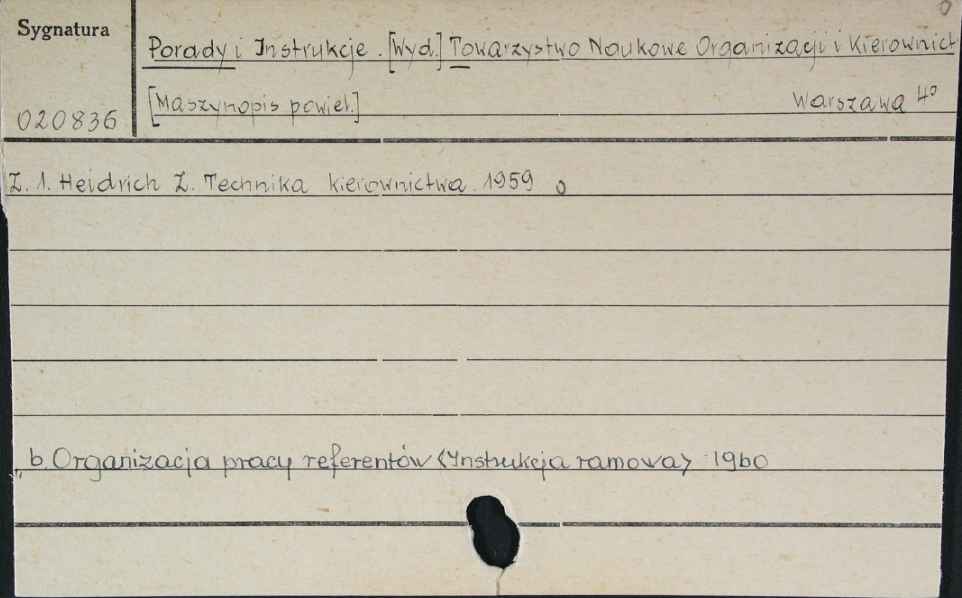 Sygnatura
Porady i Instrukcje. [Wyd.] Towarzystwo Naukowe Organizacji i Kierownict
[Maszynopis powiel.] Warszawa 4°
020836
Z. 1. Heidrich Z. Technika kierownictwa. 1959 0
„ 6. Organizacja pracy referentów <Instrukcja ramowa> 1960